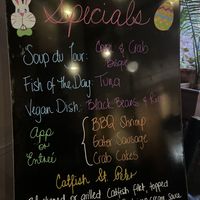 Specials
Soup du Jour: Corn & Crab
Bisque
Fish of the Day: Tuna
Vegan Dish: Black Beans &
App { BBQ Shrimp
or Gator Sausage
Entrée Crab Cakes
Catfish St. Peter
or grilled Catfish filet, topped
sauce